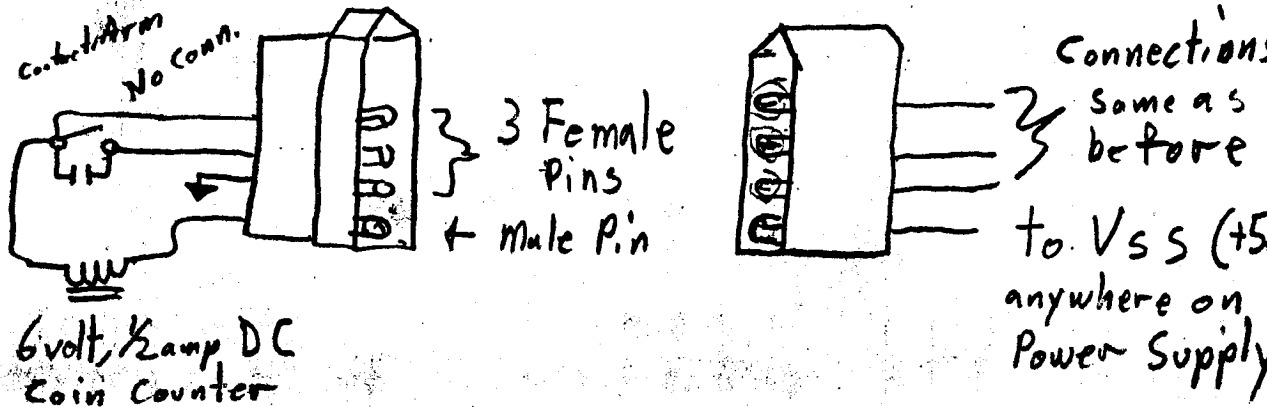 Contact Arm
No Conn.
3 Female
Pins
← Male Pin
6 volt, ½ amp DC
Coin Counter
Connections
same as
before
to Vss (+5
anywhere on
Power Supply